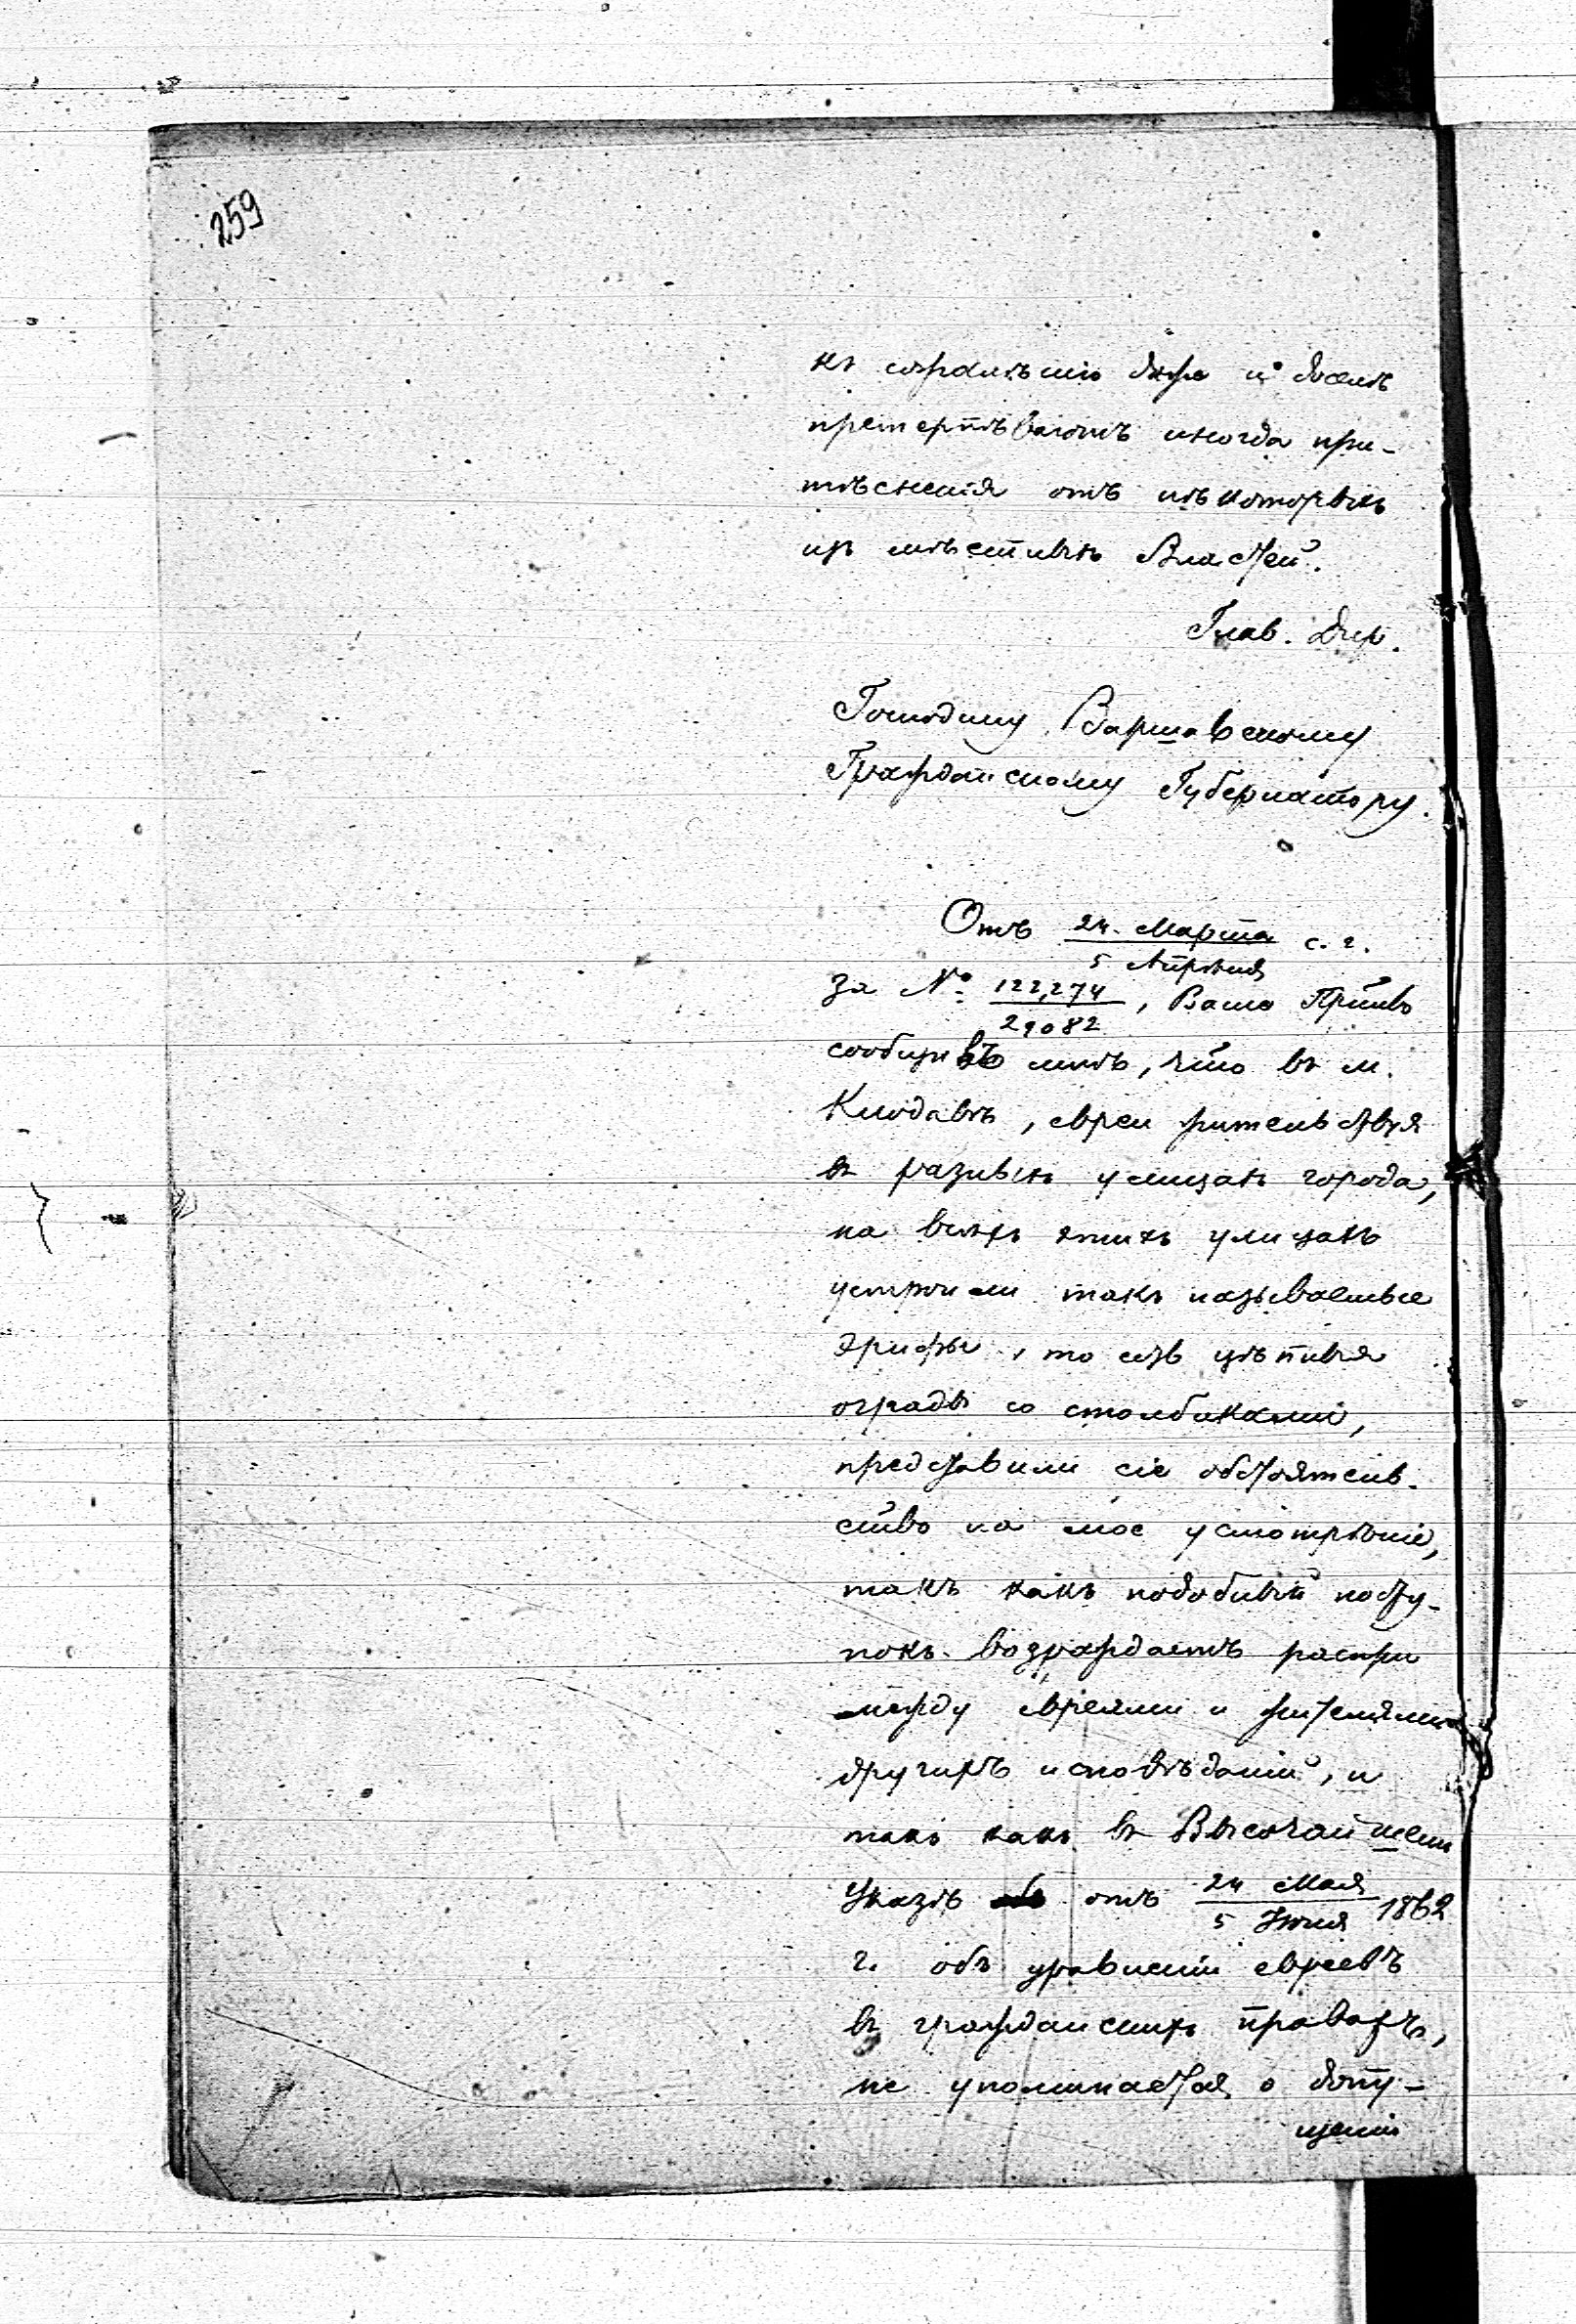 259
къ сожалѣнію даже и доселѣ
претерпѣваютъ иногда при-
тѣсненія отъ нѣкоторыхъ
изъ мѣстныхъ Властей.
Глав. Дир.
Господину Варшавскому
Гражданскому Губернатору.
Отъ 24 Марта / 5 Апрѣля с. г.
за № 122,274 / 29082, Ваше
сообщивъ мнѣ, что въ м.
Клодавѣ, евреи жительствуя
въ разныхъ улицахъ города,
на всѣхъ этихъ улицахъ
устроили такъ называемые
эрифы, то есть цѣпныя
ограды со столбиками,
представили сіе обстоятель-
ство на мое усмотрѣніе,
такъ какъ подобный посту-
покъ возраждаетъ распри
между евреями и жителями
другихъ исповѣданій, и
такъ какъ въ Высочайшем
Указѣ отъ 24 Мая / 5 Іюня 1862
г. объ уравненіи евреевъ
въ гражданскихъ правахъ,
не упоминается о допу-
щеніи